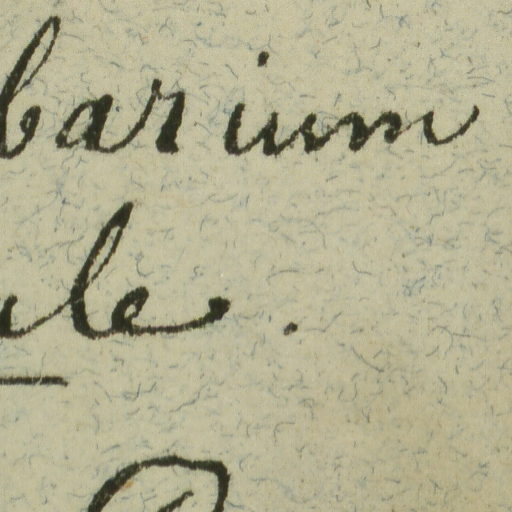 barium
ule.